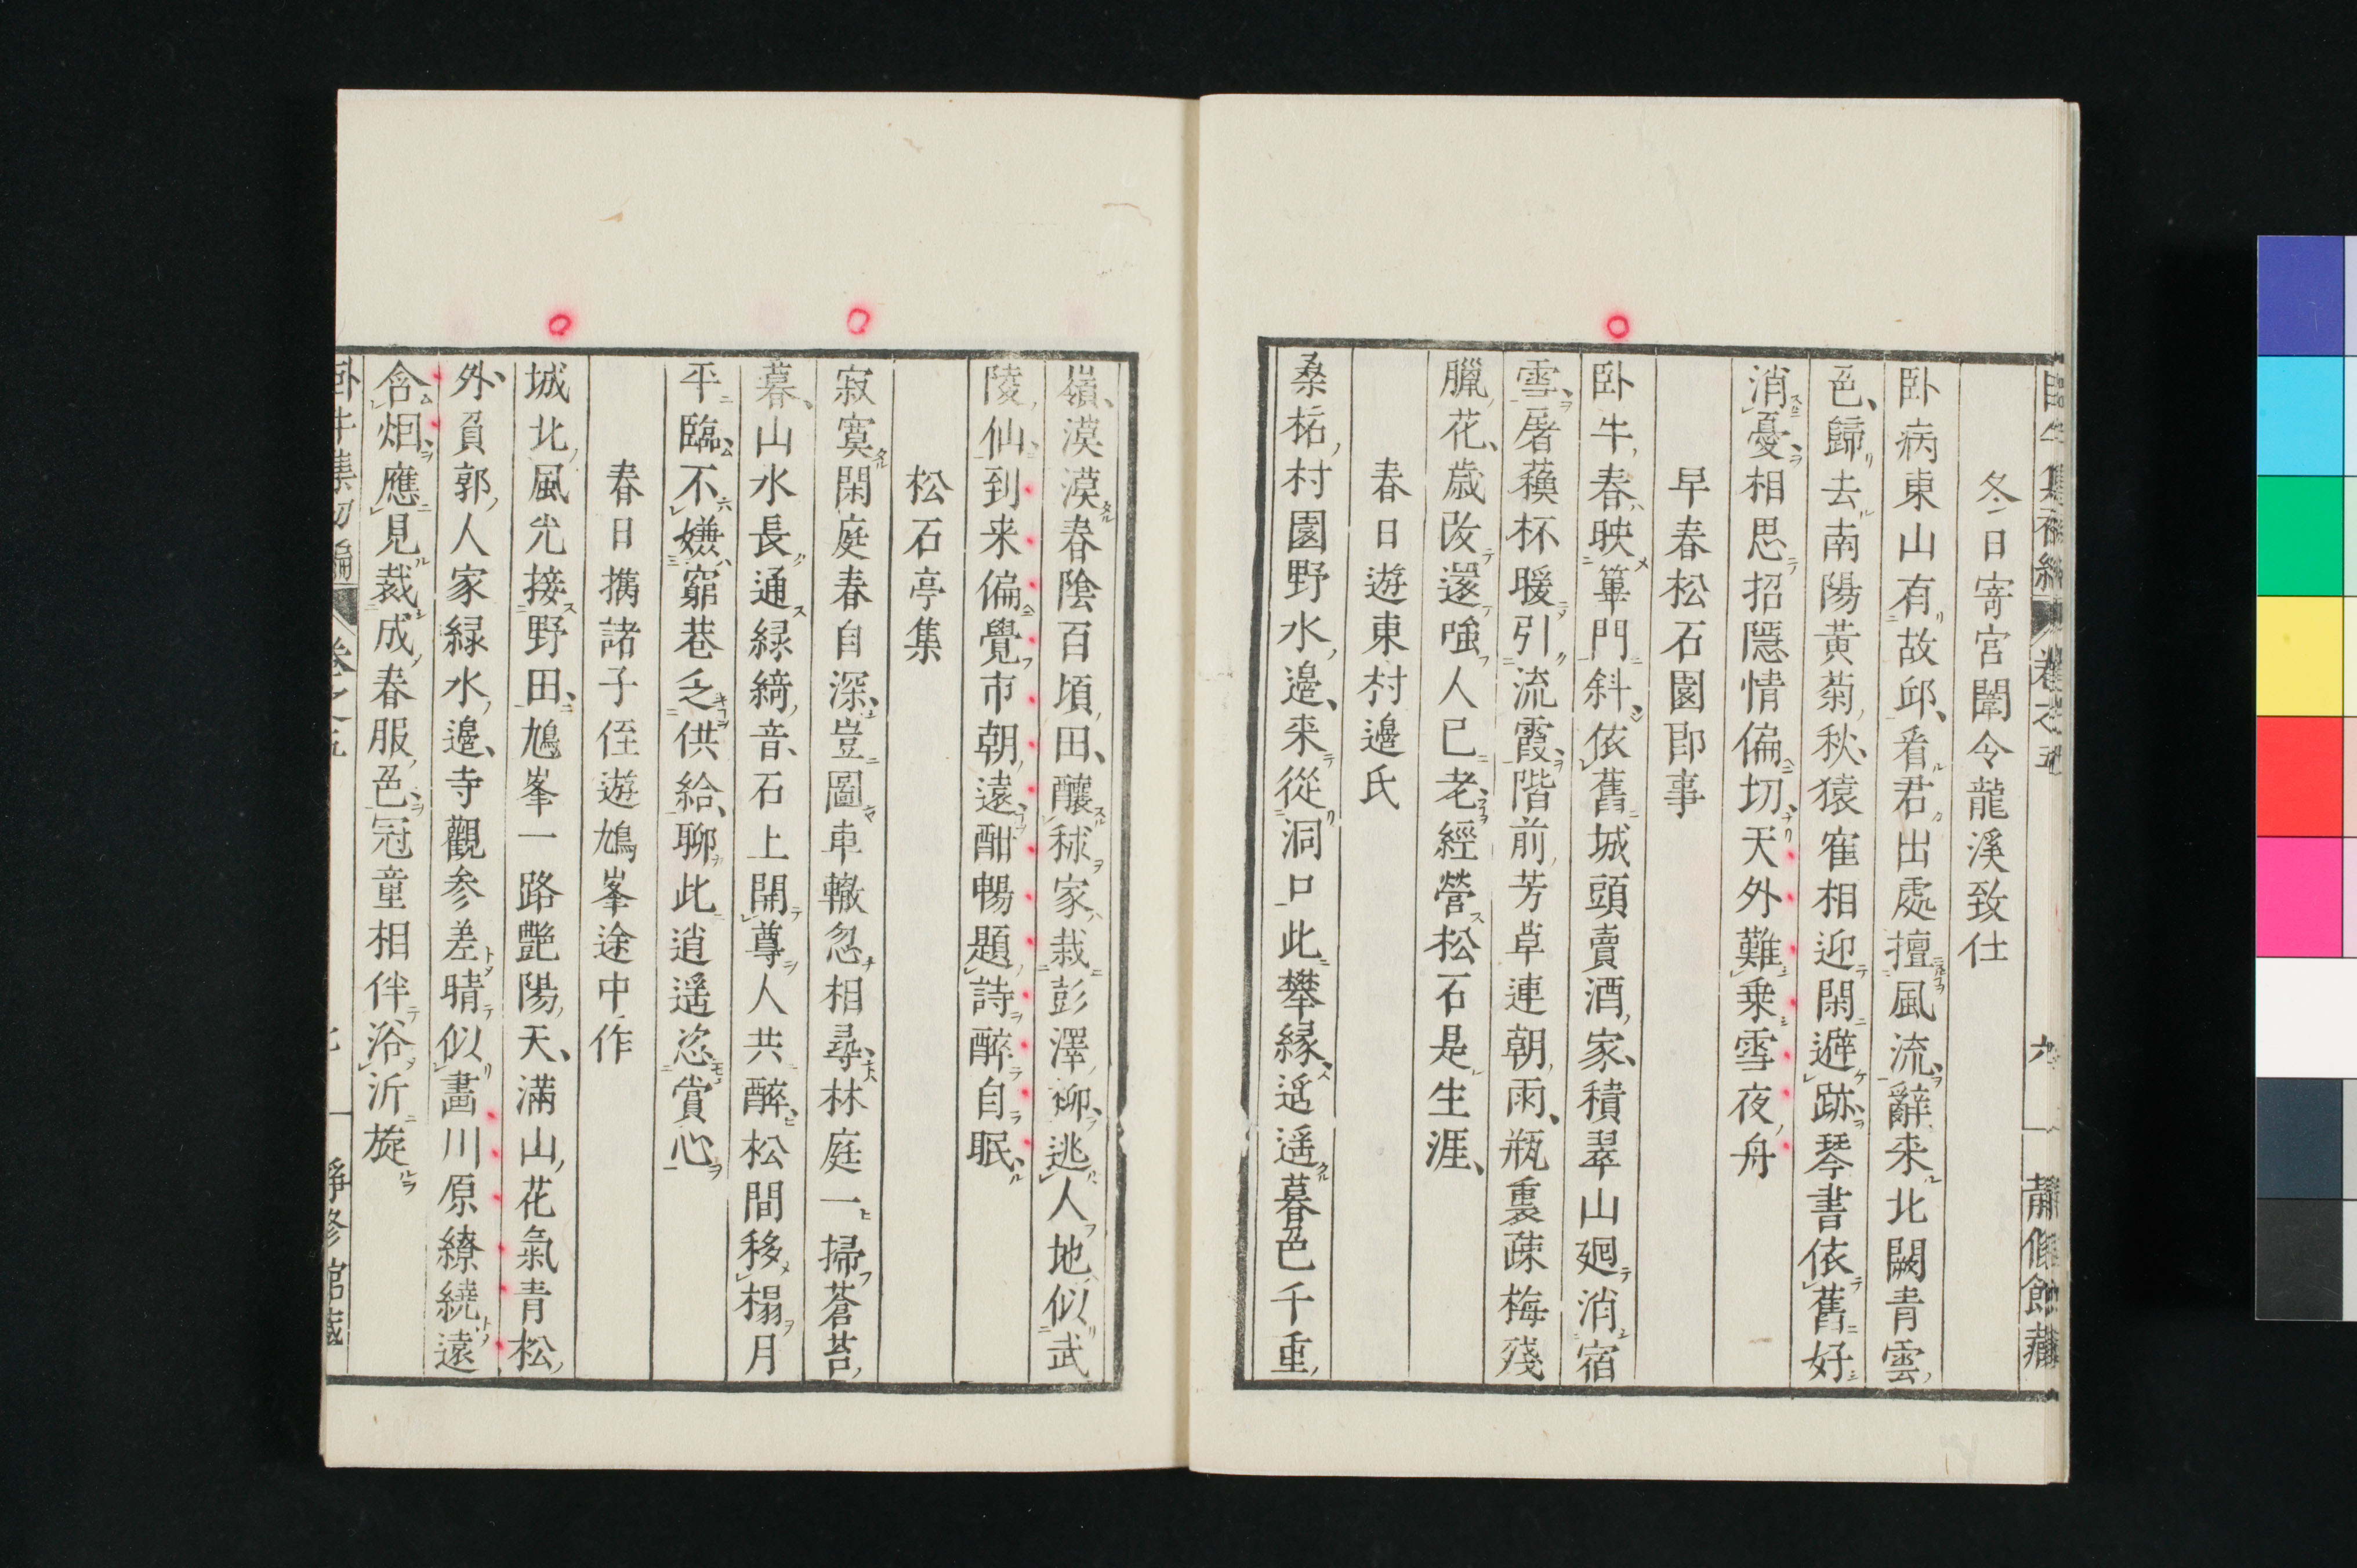 冬日寄宮闈令龍溪致仕
卧病東山有故邱看君出處擅風流辭来北闕青雲
色歸去南陽黃菊秋猿寉相迎閑避跡琴書依舊好
消憂相思招隱情偏切天外難乗雪夜舟
早春松石園即事
卧牛春映篳門斜依舊城頭賣酒家積翠山廻消宿
雪屠蘓杯暖引流霞階前芳草連朝雨瓶裏疎梅殘
臘花歳改還嗤人已老經營松石是生涯
春日遊東村邊氏
桑柘村園野水邊来從洞口此攀縁遥遥暮色千重
嶺漠漠春陰百頃田釀秫家栽彭澤柳逃人地似武
陵仙到来偏覺市朝遠酣暢題詩醉自眠
松石亭集
寂寞閑庭春自深豈圖車轍忽相尋林庭一掃蒼苔
暮山水長通緑綺音石上開尊人共醉松間移榻月
平臨不嫌窮巷乏供給聊此逍遥恣賞心
春日携諸子侄遊鳩峯途中作
城北風光接野田鳩峯一路艷陽天滿山花氣青松
外負郭人家緑水邊寺觀参差晴似畵川原繚繞遠
含烟應見裁成春服色冠童相伴浴沂旋
卧牛集初編 卷之五